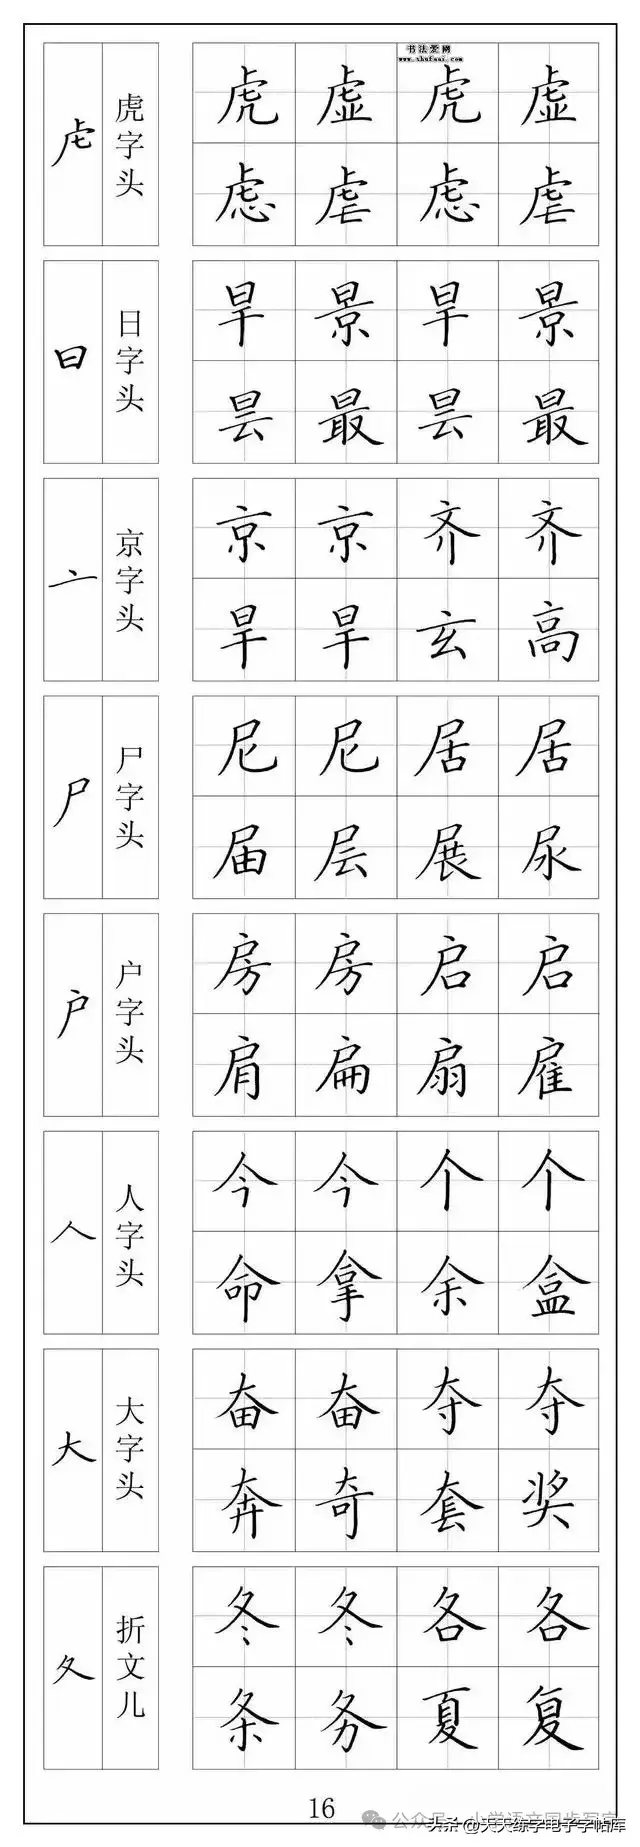 书法爱网
www.shufaai.com
虍 虎字头
虎 虚 虎 虚
虑 虐 虑 虐
日 日字头
旱 景 旱 景
昙 最 昙 最
亠 京字头
京 京 齐 齐
旱 旱 玄 高
尸 尸字头
尼 尼 居 居
届 层 展 尿
户 户字头
房 房 启 启
肩 扁 扇 雇
人 人字头
今 今 个 个
命 拿 余 盒
大 大字头
奋 奋 夺 夺
奔 奇 套 奖
夂 折文儿
冬 冬 各 各
条 务 夏 复
16
公众号·小学语文同步写字
头条@天天练字电子字帖库